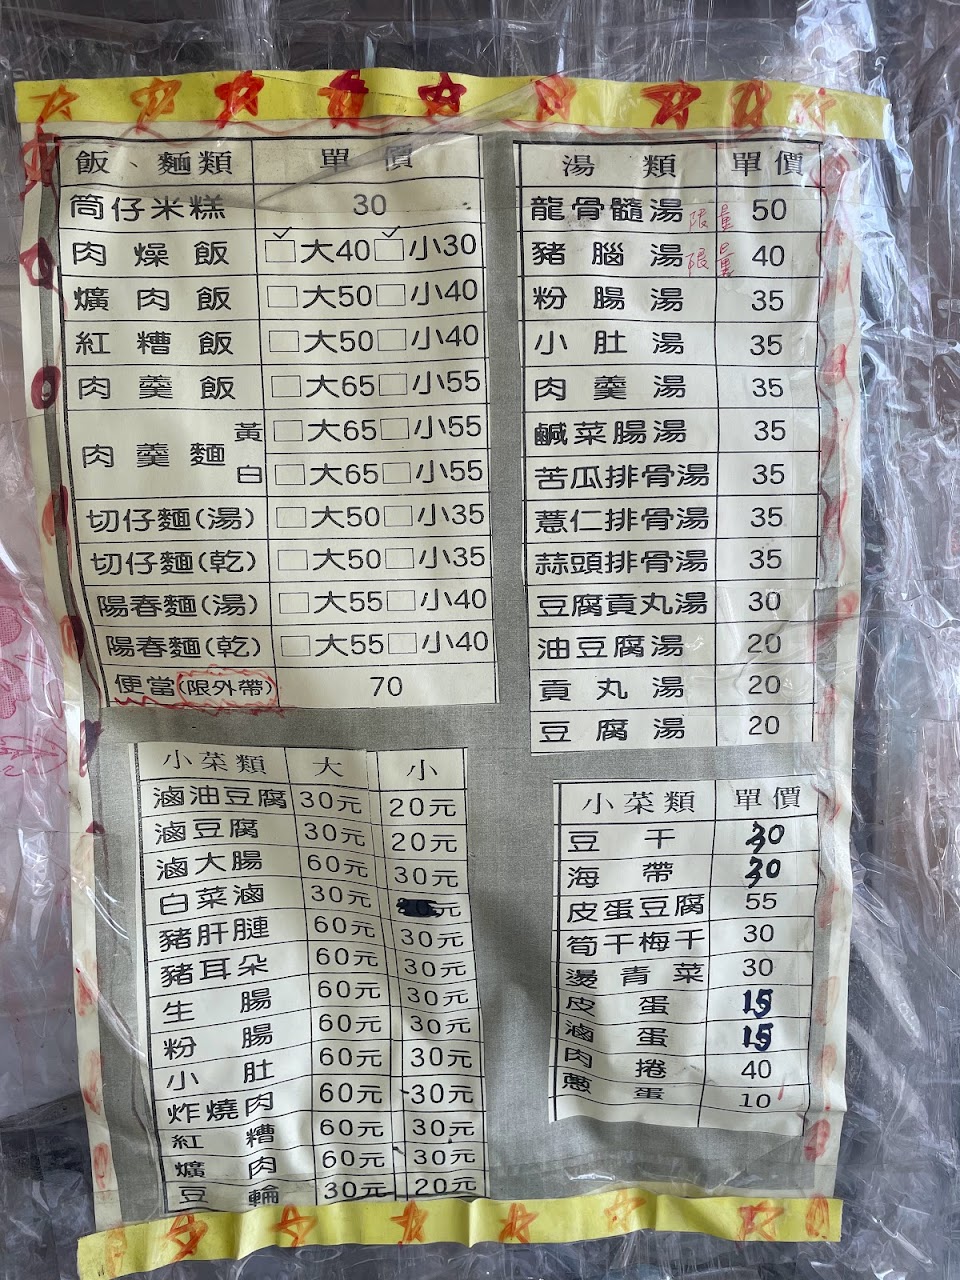 飯、麵類 單價
筒仔米糕 30
肉燥飯 大40 小30
爌肉飯 大50 小40
紅糟飯 大50 小40
肉羹飯 大65 小55
肉羹麵 黃 大65 小55
白 大65 小55
切仔麵(湯) 大50 小35
切仔麵(乾) 大50 小35
陽春麵(湯) 大55 小40
陽春麵(乾) 大55 小40
便當(限外帶) 70
湯類 單價
龍骨髓湯 限量 50
豬腦湯 限量 40
粉腸湯 35
小肚湯 35
肉羹湯 35
鹹菜腸湯 35
苦瓜排骨湯 35
薏仁排骨湯 35
蒜頭排骨湯 35
豆腐貢丸湯 30
油豆腐湯 20
貢丸湯 20
豆腐湯 20
小菜類 大 小
滷油豆腐 30元 20元
滷豆腐 30元 20元
滷大腸 60元 30元
白菜滷 30元 元
豬肝腱 60元 30元
豬耳朵 60元 30元
生腸 60元 30元
粉腸 60元 30元
小肚 60元 30元
炸燒肉 60元 30元
紅糟 60元 30元
爌肉 60元 30元
豆輪 30元 20元
小菜類 單價
豆干 30
海帶 30
皮蛋豆腐 55
筍干梅干 30
燙青菜 30
皮蛋 15
滷蛋 15
肉捲 40
蔥蛋 10